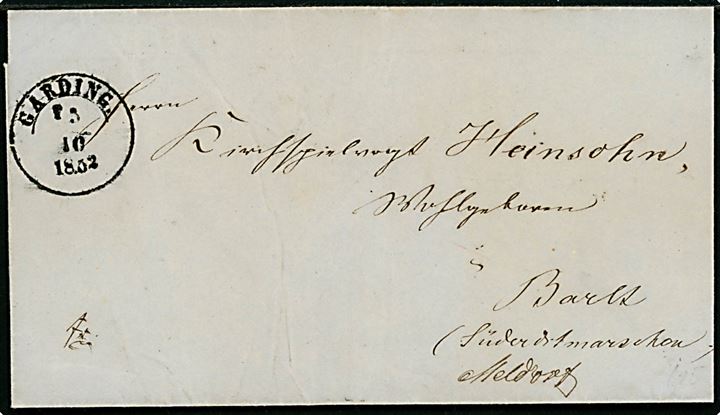 GARDING.
10
1852
Herrn
Kirchspielvogt Heinsohn,
Wohlgeboren
Barlt
(Süderditmarschen
Meldorf